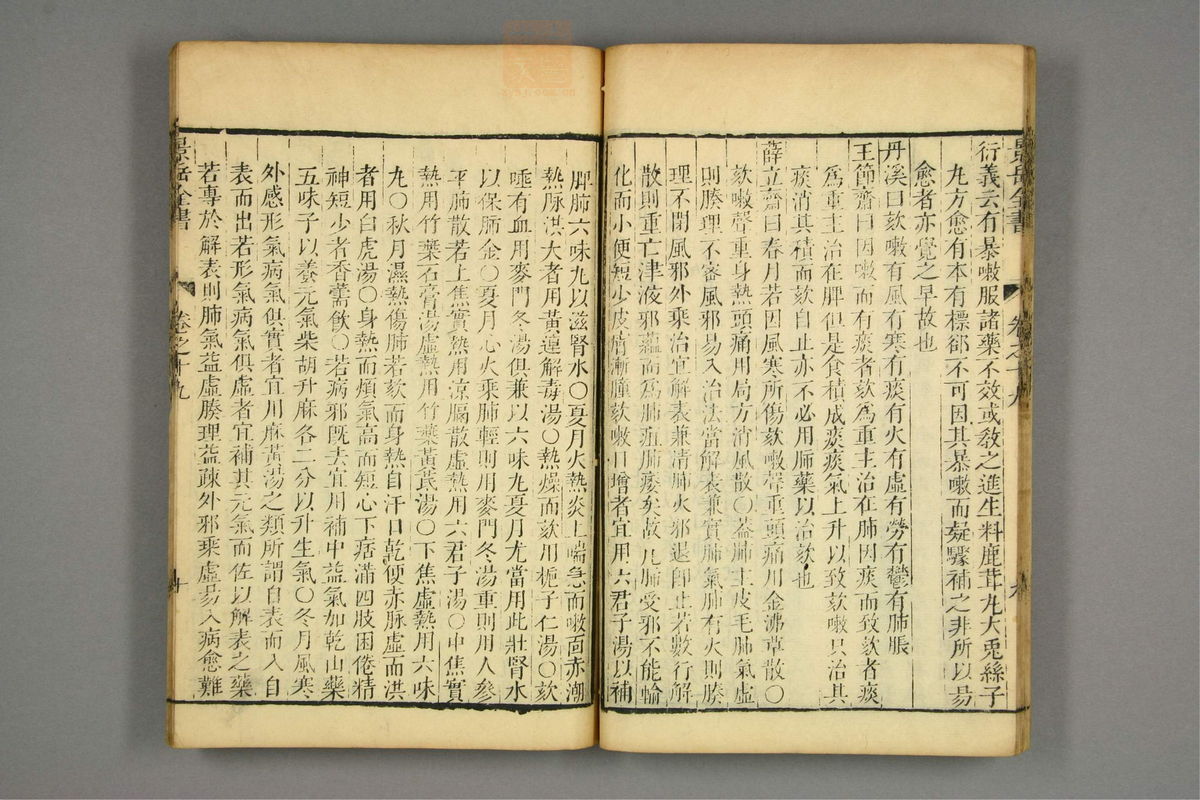 景岳全書
卷之十九
衍義云有暴嗽服諸藥不效或教之進生料鹿茸丸大兎絲子
丸方愈有本有標卻不可因其暴嗽而疑驟補之非所以易
愈者亦覺之早故也
丹溪曰欬嗽有風有寒有痰有火有虛有勞有鬱有肺脹
王節齋曰因嗽而有痰者欬爲重主治在肺因痰而致欬者痰
爲重主治在脾但是食積成痰痰氣上升以致欬嗽只治其
痰消其積而欬自止亦不必用肺藥以治欬也
薛立齋曰春月若因風寒所傷欬嗽聲重頭痛用金沸草散〇
欬嗽聲重身熱頭痛用局方消風散〇葢肺主皮毛肺氣虛
則腠理不密風邪易入治法當解表兼實肺氣肺有火則腠
理不閉風邪外乘治宜解表兼清肺火邪退卽止若數行解
散則重亡津液邪蘊而爲肺疽肺痿矣故凡肺受邪不能輸
化而小便短少皮膚漸腫欬嗽日增者宜用六君子湯以補
脾肺六味丸以滋腎水〇夏月火熱炎上喘急而嗽面赤潮
熱脉洪大者用黃連解毒湯〇熱燥而欬用梔子仁湯〇欬
唾有血用麥門冬湯俱兼以六味丸夏月尤當用此壯腎水
以保肺金〇夏月心火乘肺輕則用麥門冬湯重則用人參
平肺散若上焦實熱用涼膈散虛熱用六君子湯〇中焦實
熱用竹葉石膏湯虛熱用竹葉黃芪湯〇下焦虛熱用六味
丸〇秋月濕熱傷肺若欬而身熱自汗口乾便赤脉虛而洪
者用白虎湯〇身熱而煩氣高而短心下痞滿四肢困倦精
神短少者香薷飲〇若病邪既去宜用補中益氣加乾山藥
五味子以養元氣柴胡升麻各二分以升生氣〇冬月風寒
外感形氣病氣俱實者宜用麻黃湯之類所謂自表而入自
表而出若形氣病氣俱虛者宜補其元氣而佐以解表之藥
若專於解表則肺氣益虛腠理益疎外邪乘虛易入病愈難
景岳全書
卷之十九
十